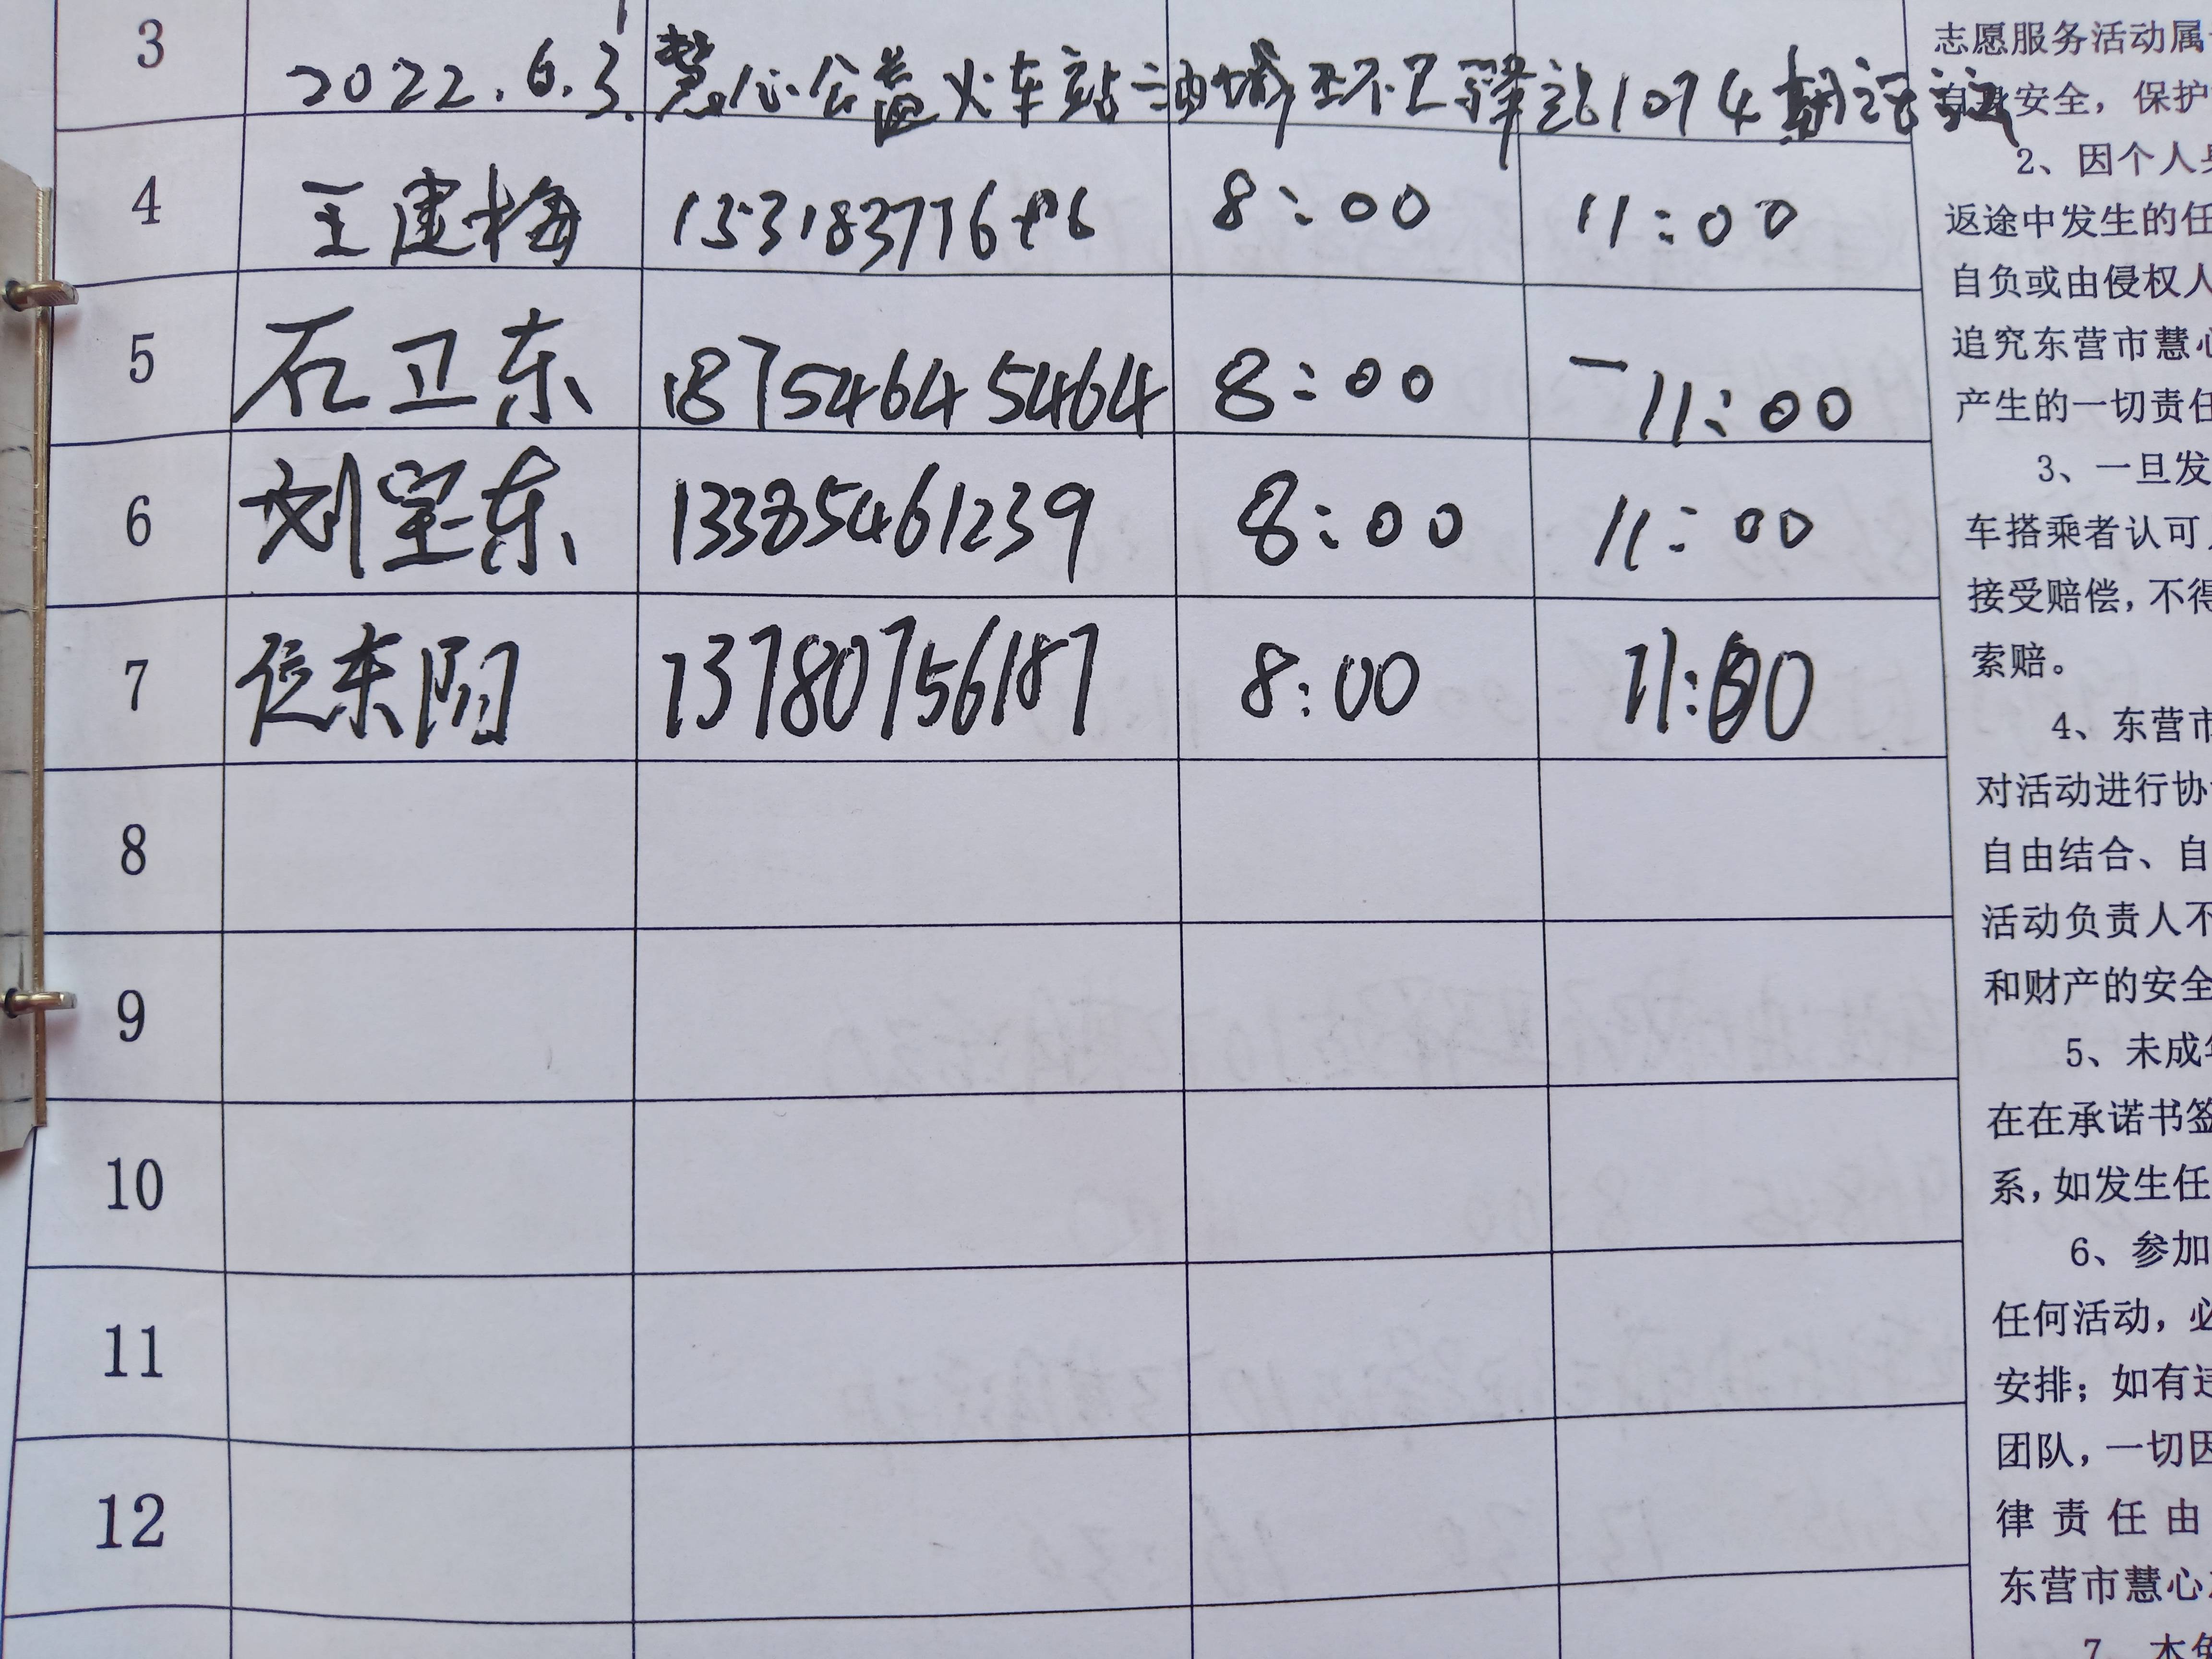 3 2022.6.3. 慧心公益火车站 油城 驿站1074期活动
4 王建梅 8:00 11:00
5 石卫东 18754645464 8:00 - 11:00
6 刘宝东 13385461239 8:00 11:00
7 位东阳 13780756187 8:00 11:00
8
9
10
11
12
志愿服务活动属
安全，保护
2、因个人身
返途中发生的任
自负或由侵权人
追究东营市慧心
产生的一切责任
3、一旦发
车搭乘者认可
接受赔偿，不得
索赔。
4、东营市
对活动进行协
自由结合、自
活动负责人不
和财产的安全
5、未成年
在在承诺书签
系，如发生任
6、参加
任何活动，必
安排；如有违
团队，一切因
律责任由
东营市慧心
7、本